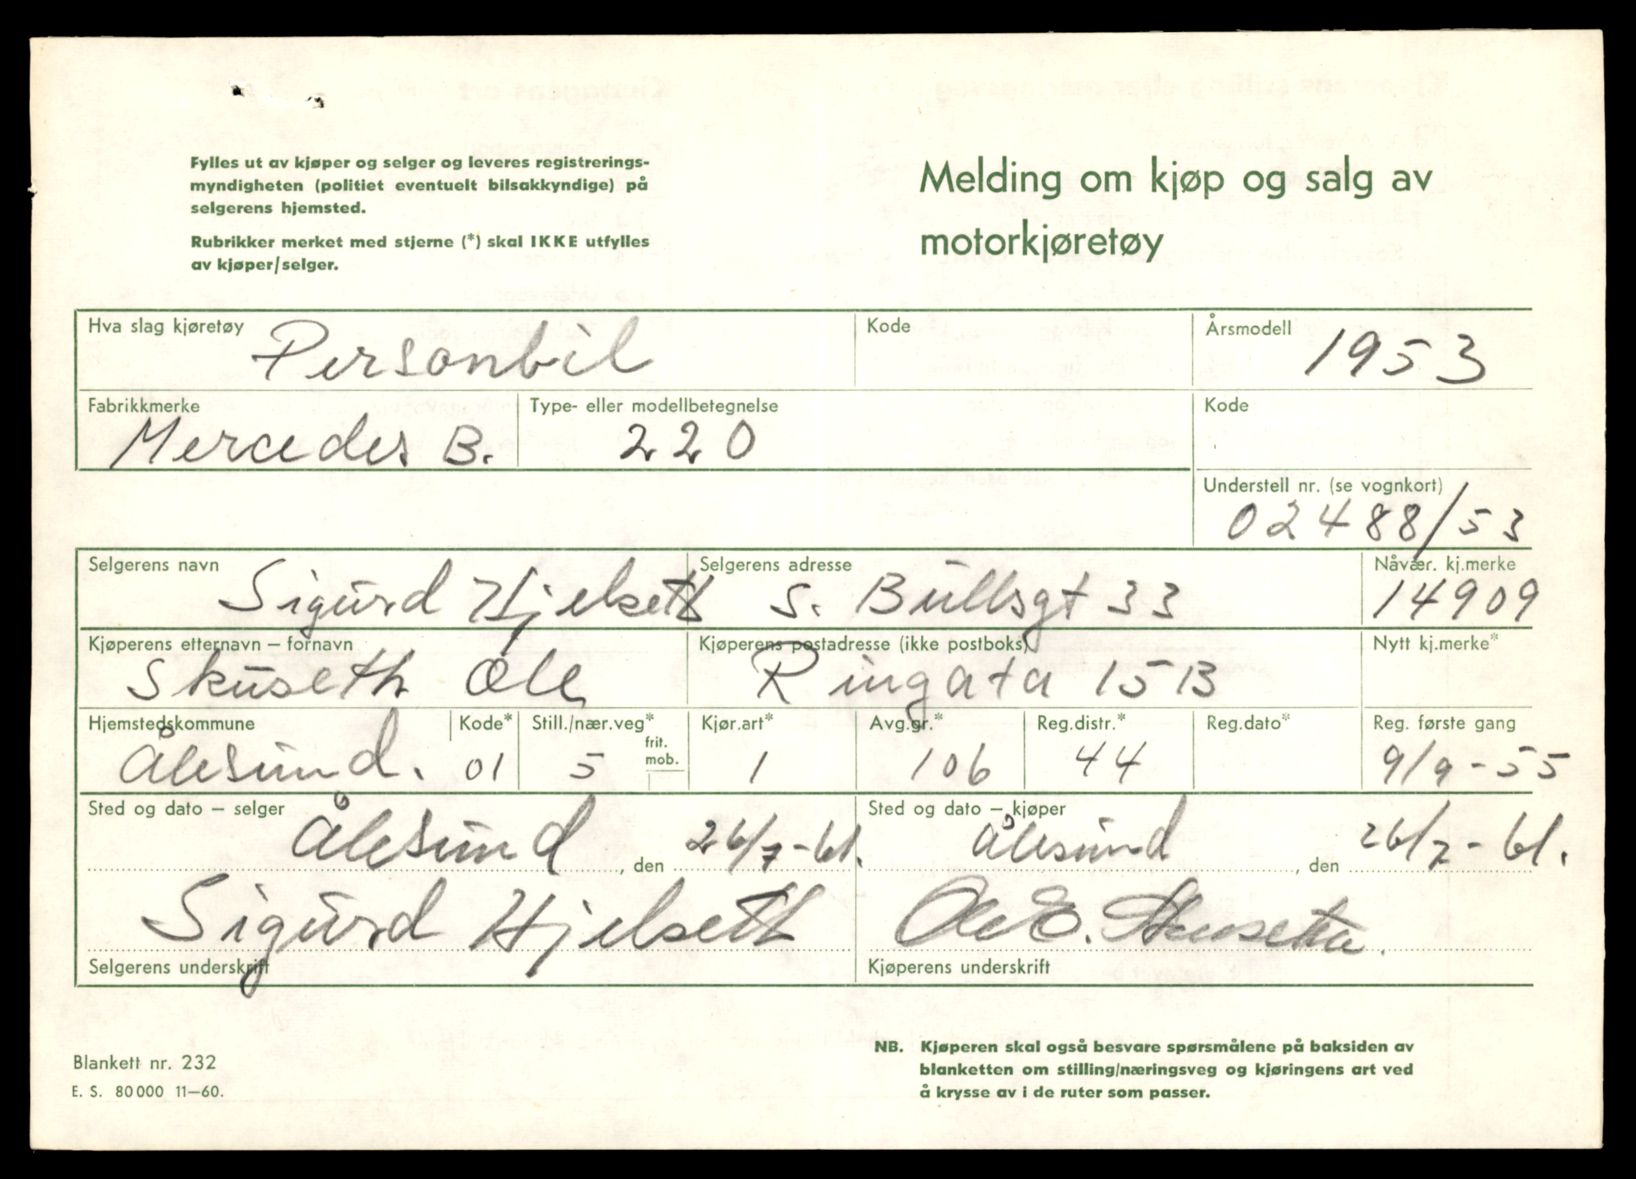 Fylles ut av kjøper og selger og leveres registrerings-
myndigheten (politiet eventuelt bilsakkyndige) på
selgerens hjemsted.
Rubrikker merket med stjerne (*) skal IKKE utfylles
av kjøper/selger.
Melding om kjøp og salg av
motorkjøretøy
Hva slag kjøretøy Kode Årsmodell
Personbil 1953
Fabrikkmerke Type- eller modellbetegnelse Kode
Mercedes B. 220
Understell nr. (se vognkort)
02488/53
Selgerens navn Selgerens adresse Nåvær. kj.merke
Sigurd Hjelseth S. Bullsgt 33 14909
Kjøperens etternavn – fornavn Kjøperens postadresse (ikke postboks) Nytt kj.merke*
Skuseth Ole Ringata 15 B
Hjemstedskommune Kode* Still./nær.veg* Kjør.art* Avg.gr.* Reg.distr.* Reg.dato* Reg. første gang
frit.
mob.
Ålesund. 01 5 1 106 44 9/9-55
Sted og dato – selger Sted og dato – kjøper
Ålesund , den 26/7-61. Ålesund , den 26/7-61.
Sigurd Hjelseth Ole E. Skuseth.
Selgerens underskrift Kjøperens underskrift
Blankett nr. 232
E. S. 80000 11–60.
NB. Kjøperen skal også besvare spørsmålene på baksiden av
blanketten om stilling/næringsveg og kjøringens art ved
å krysse av i de ruter som passer.